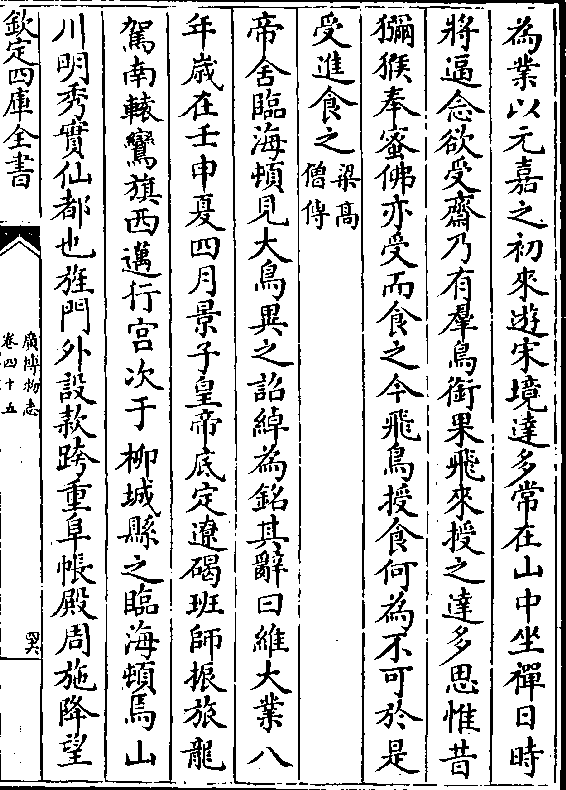 為業以元嘉之初來遊宋境達多常在山中坐禪日時
將逼念欲受齋乃有羣鳥銜果飛來授之達多思惟昔
獼猴奉蜜佛亦受而食之今飛鳥授食何為不可於是
受進食之梁高
僧傳
帝舍臨海頓見大鳥異之詔綽為銘其辭曰維大業八
年歲在壬申夏四月景子皇帝底定遼碣班師振旅龍
駕南轅鸞旗西邁行宫次于柳城縣之臨海頓焉山
川明秀實仙都也旌門外設款跨重阜帳殿周施降望
欽定四庫全書
廣博物志
卷四十五